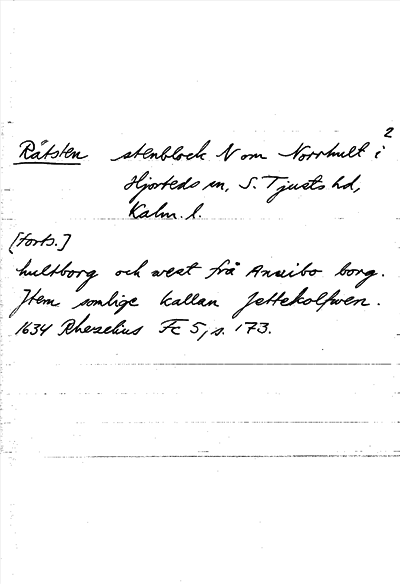 2
Råtsten stenblock N om Norrhult i
Hjorteds sn, S. Tjusts hd,
Kalm. l.
[forts.]
hultborg och west frå Annibo borg.
Item somlige kallan Jettekolfwen.
1634 Rhezelius Fc 5, s. 173.